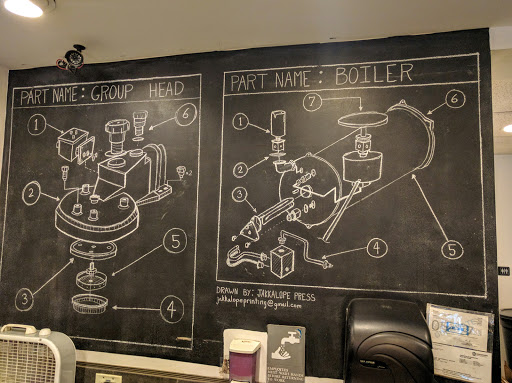 PART NAME: GROUP HEAD
1
6
x2
x2
2
5
3
4
PART NAME: BOILER
7
6
1
2
3
4
5
DRAWN BY: JAKKALOPE PRESS
jakkalopeprinting@gmail.com
EMPLOYEES
MUST WASH HANDS